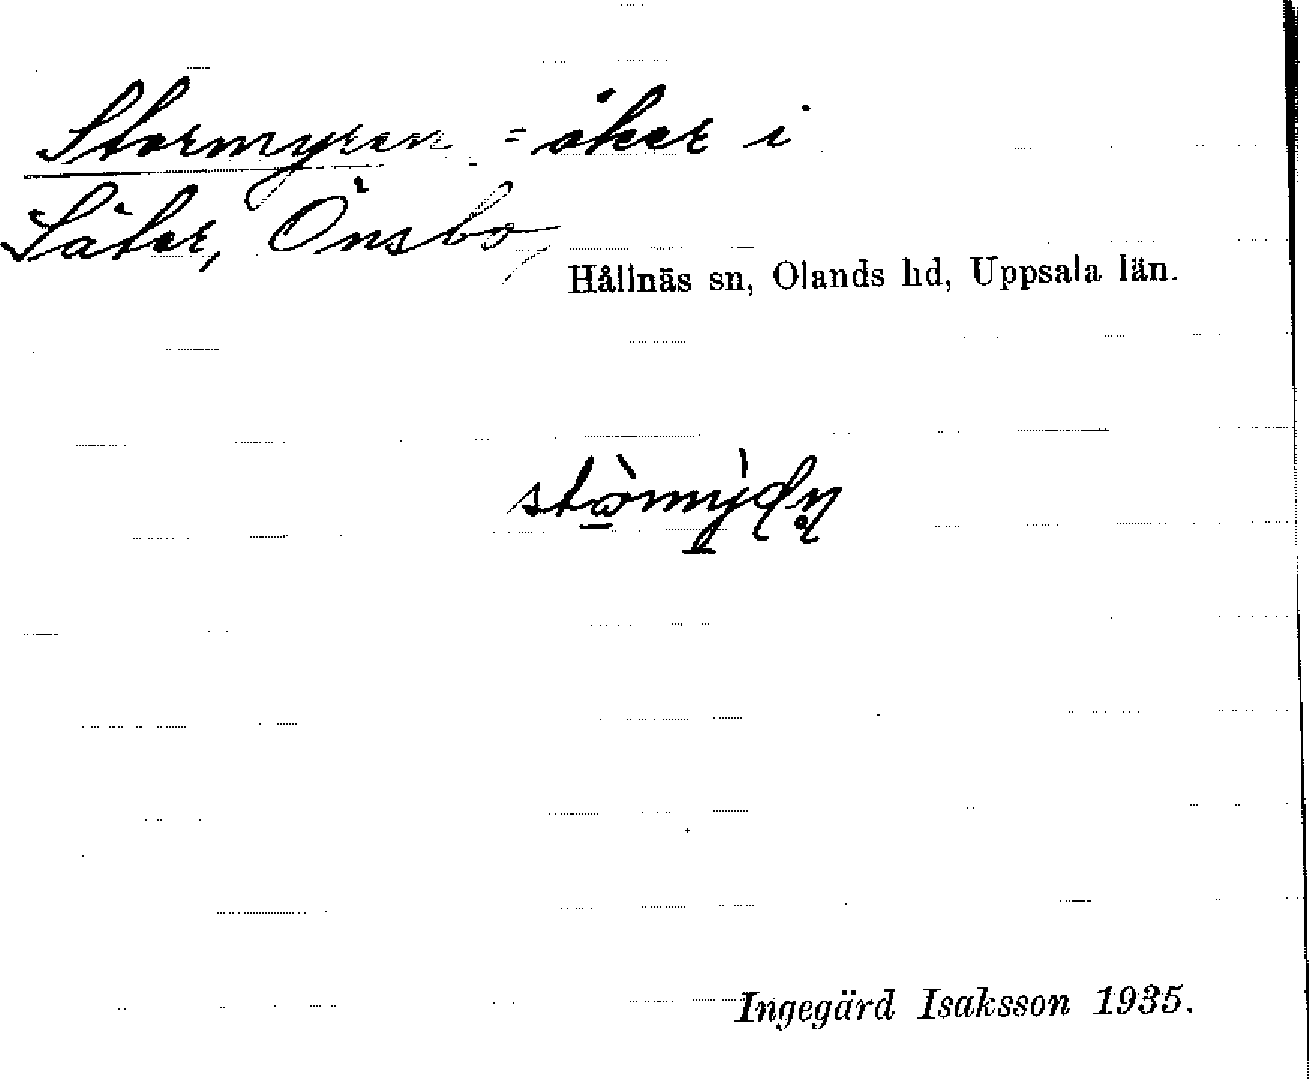 Stormyren = åker i
Säter, Önsbo,
Hållnäs sn, Olands hd, Uppsala län.
Ingegärd Isaksson 1935.